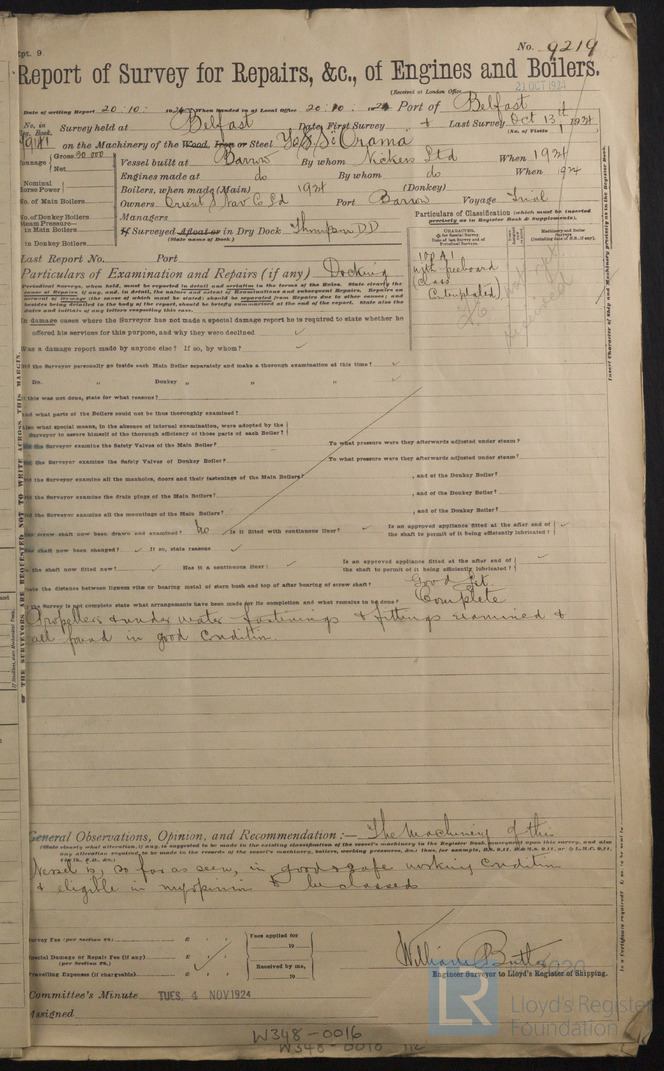 Rpt. 9
No. 9219
Report of Survey for Repairs, &c., of Engines and Boilers.
(Received at London Office 21 OCT 1924
Date of writing Report 20.10. 1924 When handed in at Local Office 20.10. 1924 Port of Belfast
No. in Reg. Book. Survey held at Belfast Date, First Survey Last Survey Oct 13th 1924
(No. of Visits 1)
on the Machinery of the Wood, Iron or Steel S.S. "Orama"
Tonnage Gross 20 000
Net
Vessel built at Barrow By whom Vickers Ltd When 1924
Engines made at do By whom do When 1924
Nominal Horse Power
Boilers, when made (Main) 1924 (Donkey)
No. of Main Boilers
Owners Orient S Nav Co Ld Port Barrow Voyage Trial
No. of Donkey Boilers
Managers
Steam Pressure— in Main Boilers
If Surveyed Afloat or in Dry Dock Thompson DD
(State name of Dock.)
in Donkey Boilers
Particulars of Classification (which must be inserted precisely as in Register Book & Supplements).
100 A1
with freeboard
(class
Contemplated)
Last Report No. Port
Particulars of Examination and Repairs (if any) Docking
Periodical Surveys, when held, must be reported in detail and seriatim in the terms of the Rules. State clearly the cause of Repairs, if any, and, in detail, the nature and extent of Examinations and subsequent Repairs. Repairs on account of Damage (the cause of which must be stated) should be separated from Repairs due to other causes; and besides being detailed in the body of the report, should be briefly summarized at the end of the report. State also the dates and initials of any letters respecting this case.
In damage cases where the Surveyor has not made a special damage report he is required to state whether he
offered his services for this purpose, and why they were declined ✓
Was a damage report made by anyone else? If so, by whom? ✓
Did the Surveyor personally go inside each Main Boiler separately and make a thorough examination at this time? ✓
Do. " Donkey " " " ✓
If this was not done, state for what reasons?
And what parts of the Boilers could not be thus thoroughly examined?
Also what special means, in the absence of internal examination, were adopted by the Surveyor to assure himself of the thorough efficiency of those parts of each Boiler?
Did the Surveyor examine the Safety Valves of the Main Boiler? To what pressure were they afterwards adjusted under steam?
Did the Surveyor examine the Safety Valves of Donkey Boiler? To what pressure were they afterwards adjusted under steam?
Did the Surveyor examine all the manholes, doors and their fastenings of the Main Boilers? , and of the Donkey Boiler?
Did the Surveyor examine the drain plugs of the Main Boilers? , and of the Donkey Boiler?
Did the Surveyor examine all the mountings of the Main Boilers? , and of the Donkey Boiler?
Has screw shaft now been drawn and examined? No Is it fitted with continuous liner? ✓ Is an approved appliance fitted at the after end of the shaft to permit of it being efficiently lubricated? ✓
Has shaft now been changed? ✓ If so, state reasons ✓
Is the shaft now fitted new? ✓ Has it a continuous liner? ✓ Is an approved appliance fitted at the after end of the shaft to permit of it being efficiently lubricated? ✓
State the distance between lignum vitæ or bearing metal of stern bush and top of after bearing of screw shaft? Good fit
If the Survey is not complete state what arrangements have been made for its completion and what remains to be done? Complete
Propellers & under water fastenings & fittings examined &
all found in good condition.
General Observations, Opinion, and Recommendation:— The Machinery of this
(State clearly what alteration, if any, is suggested to be made in the existing classification of the vessel's machinery in the Register Book, consequent upon this survey, and also
any alteration required to be made in the records of the vessel's machinery, boilers, working pressures, &c.)
Vessel is, so far as seen, in good & safe working condition
& eligible in my opinion to be classed
Survey Fee (per Section 29) £ : :
Fees applied for 19
Special Damage or Repair Fee (if any) £ : :
(per Section 29.)
Received by me, 19
Travelling Expenses (if chargeable) £ : :
William Butler
Engineer Surveyor to Lloyd's Register of Shipping.
Committee's Minute TUES. 4 NOV 1924
Assigned
W348-0016
OF THE SURVEYORS ARE REQUESTED NOT TO WRITE ACROSS THIS MARGIN.
LR
2020
Lloyd's Register
Foundation